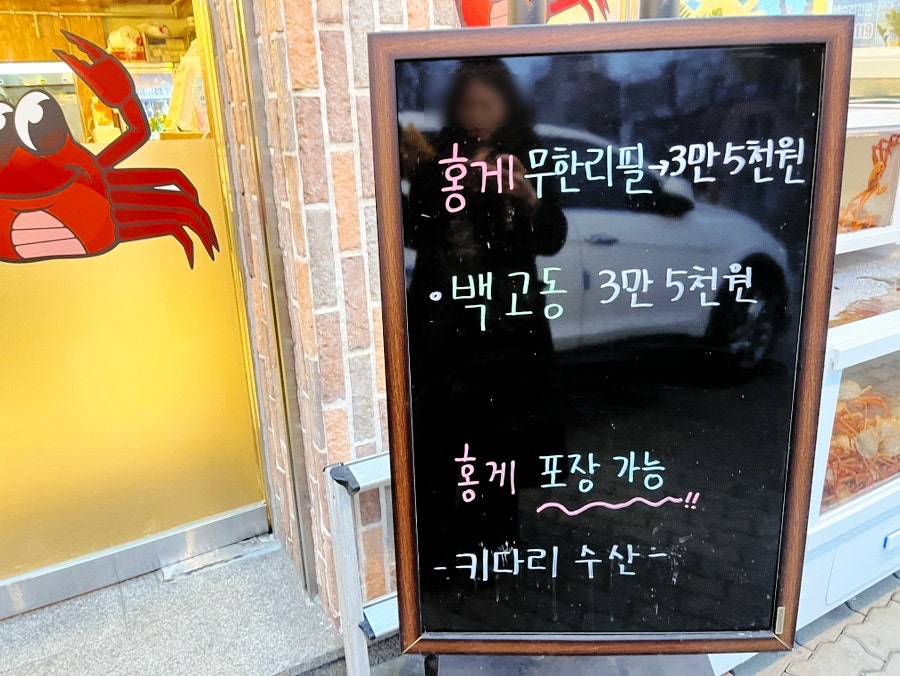 홍게 무한리필→3만5천원
• 백고동 3만5천원
홍게 포장 가능!!
-키다리 수산-